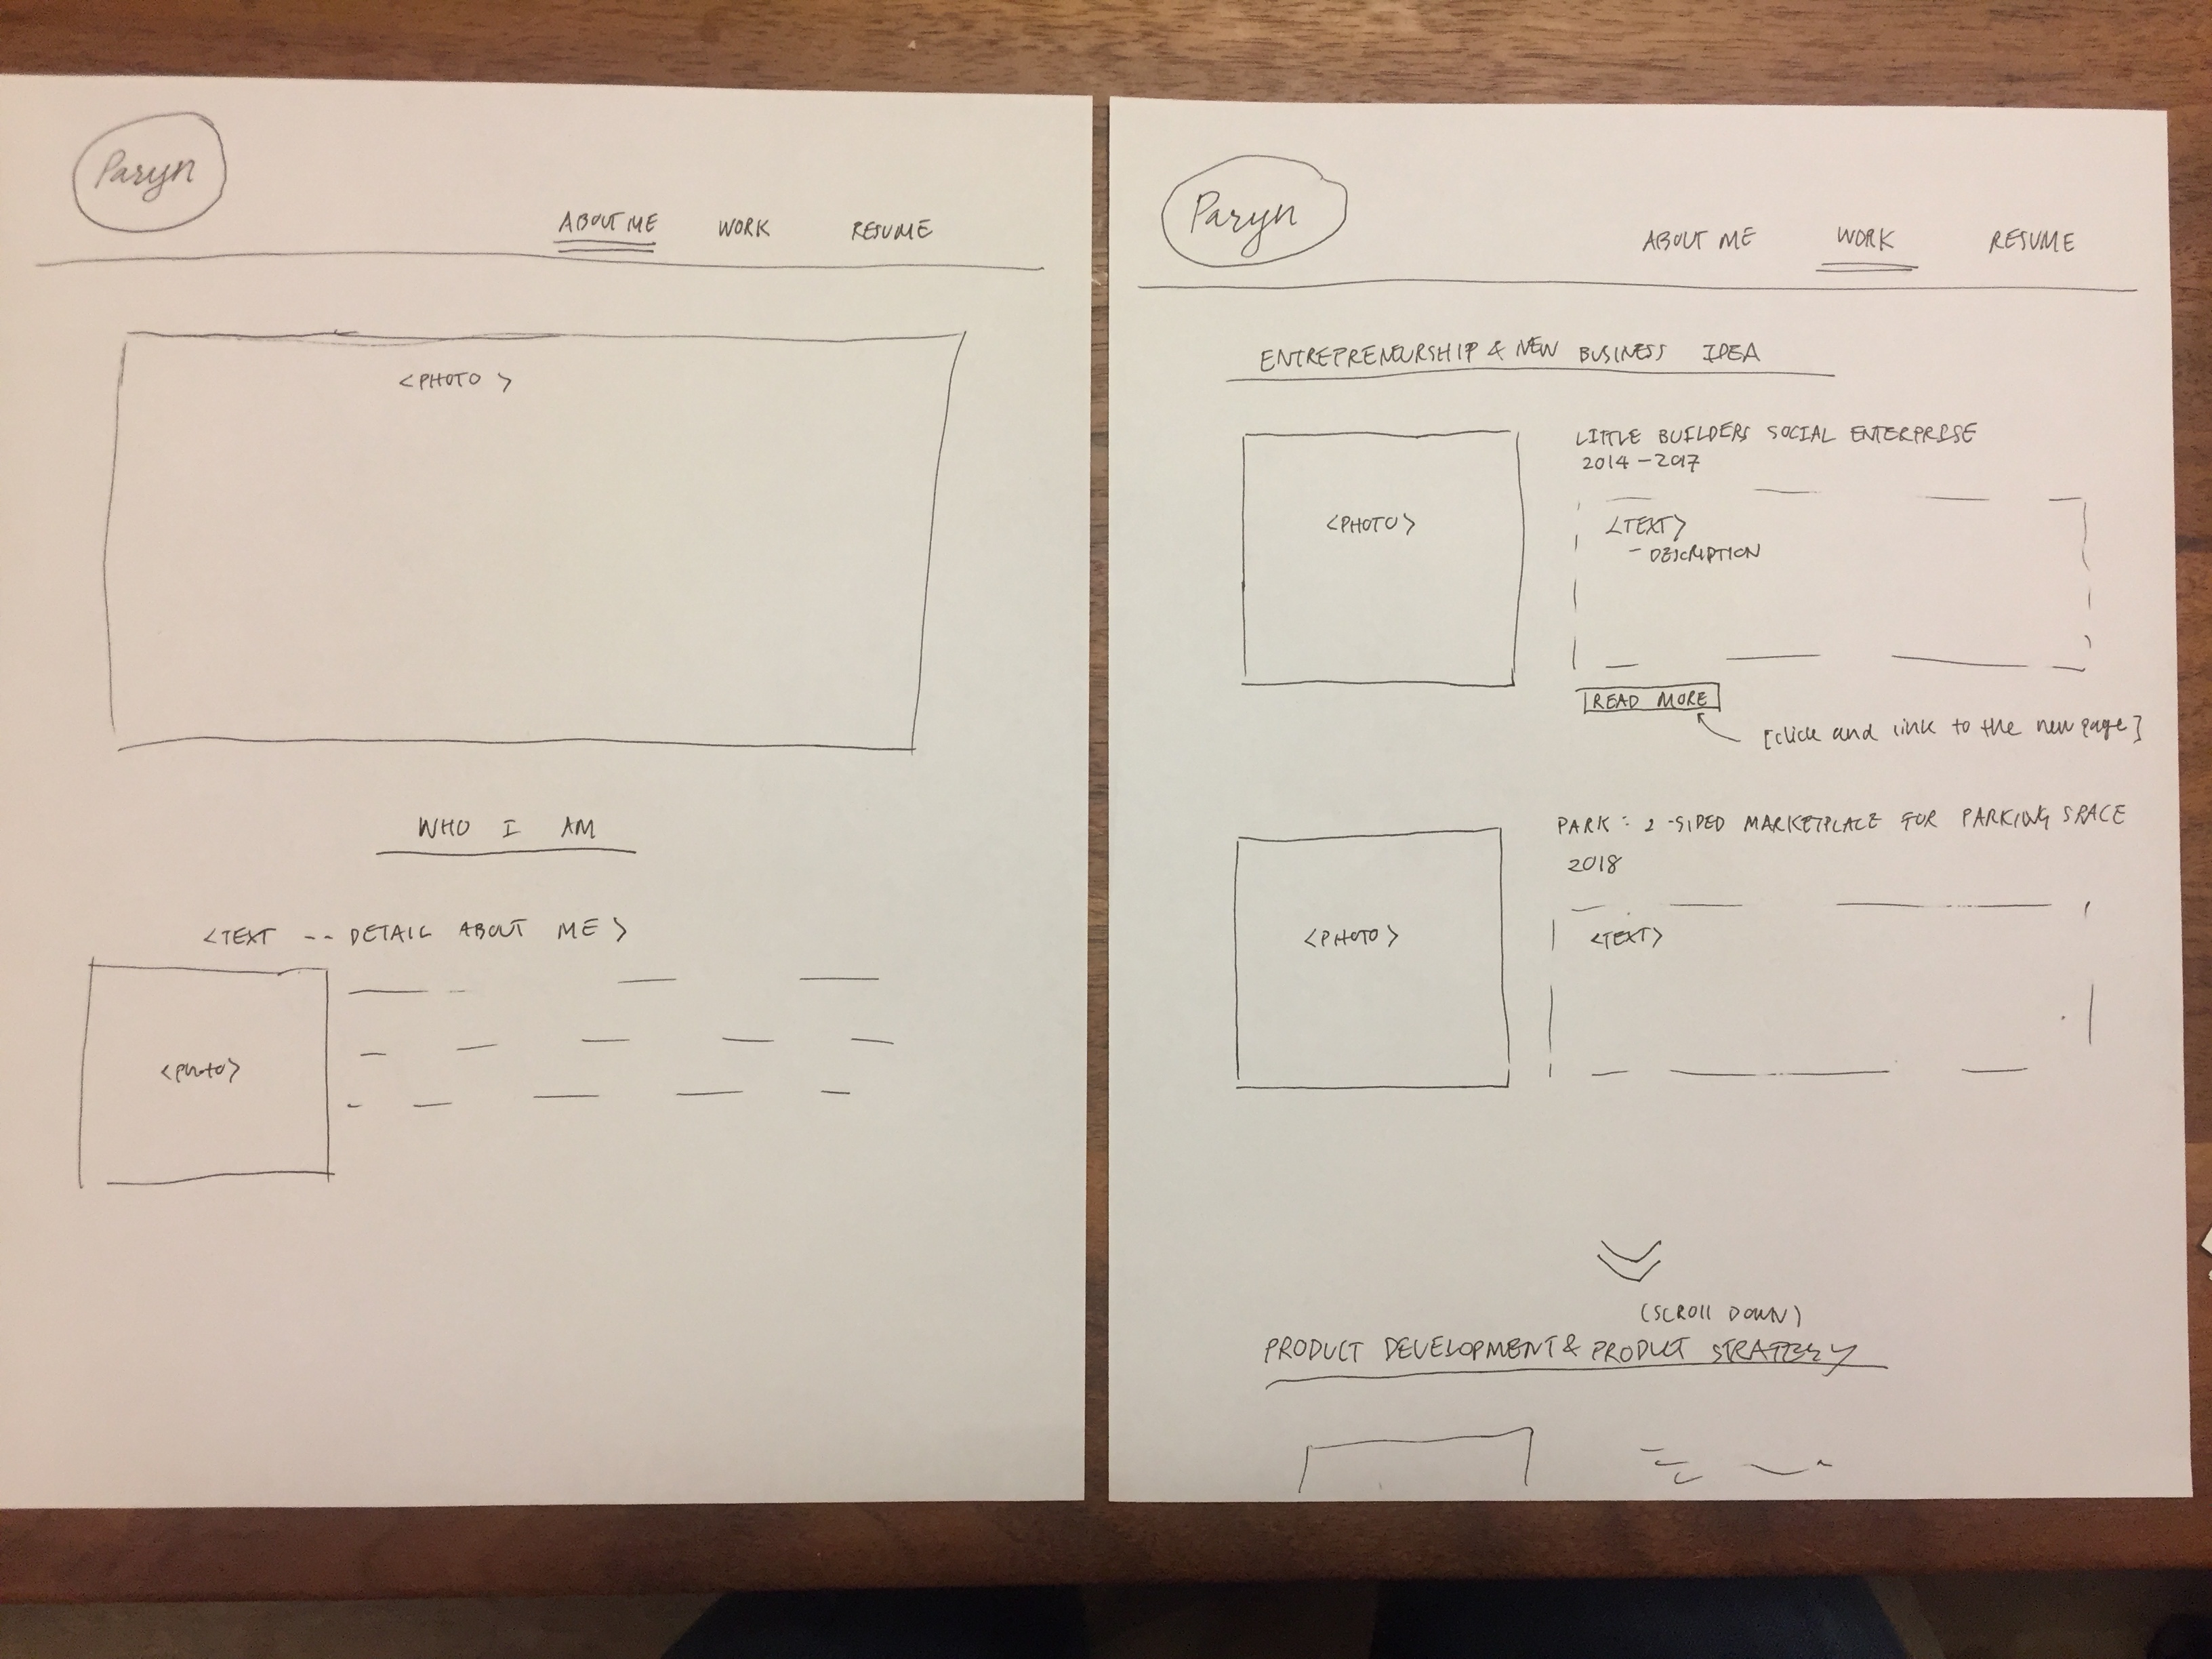 Paryn
ABOUT ME WORK RESUME
<PHOTO>
WHO I AM
<TEXT -- DETAIL ABOUT ME>
<photo>
Paryn
ABOUT ME WORK RESUME
ENTREPRENEURSHIP & NEW BUSINESS IDEA
LITTLE BUILDERS SOCIAL ENTERPRISE
2014 - 2017
<PHOTO>
<TEXT>
- DESCRIPTION
READ MORE
[click and link to the new page]
PARK : 2-SIDED MARKETPLACE FOR PARKING SPACE
2018
<PHOTO>
<TEXT>
(SCROll DOWN)
PRODUCT DEVELOPMENT & PRODUCT STRATEGY